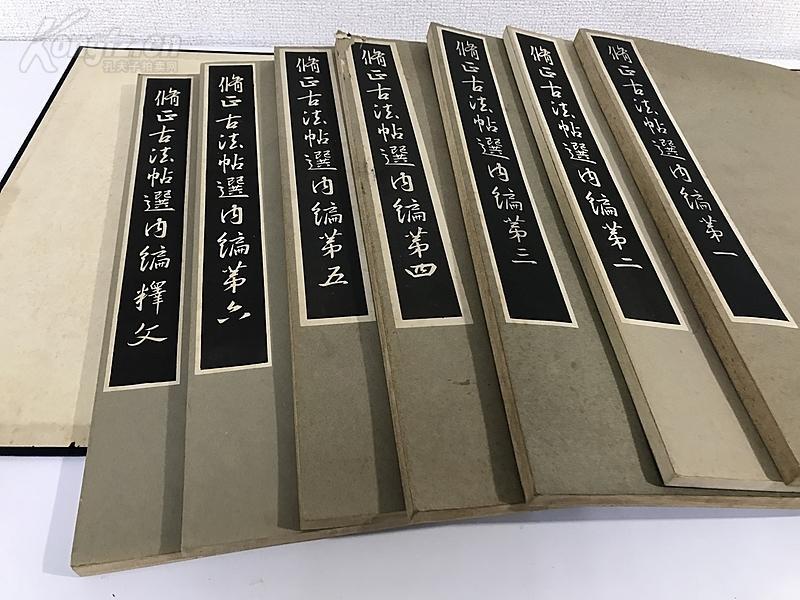 脩正古法帖選内編釋文
脩正古法帖選内編第六
脩正古法帖選内編第五
脩正古法帖選内編第四
脩正古法帖選内編第三
脩正古法帖選内編第二
脩正古法帖選内編第一
Kongfz.cn
孔夫子拍卖网